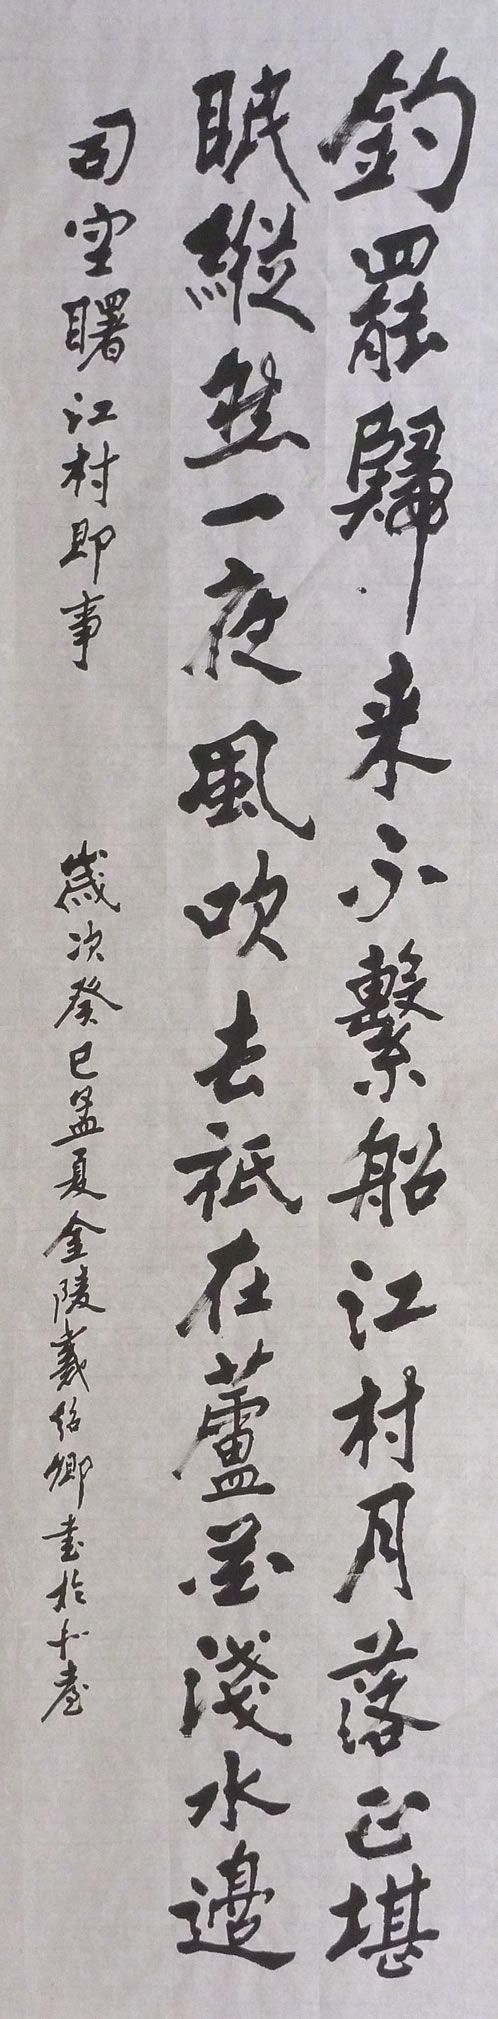 釣罷歸来不繫船江村月落正堪
眠縱然一夜風吹去祇在蘆花淺水邊
司空曙江村即事
歲次癸巳孟夏金陵戴紹卿書於